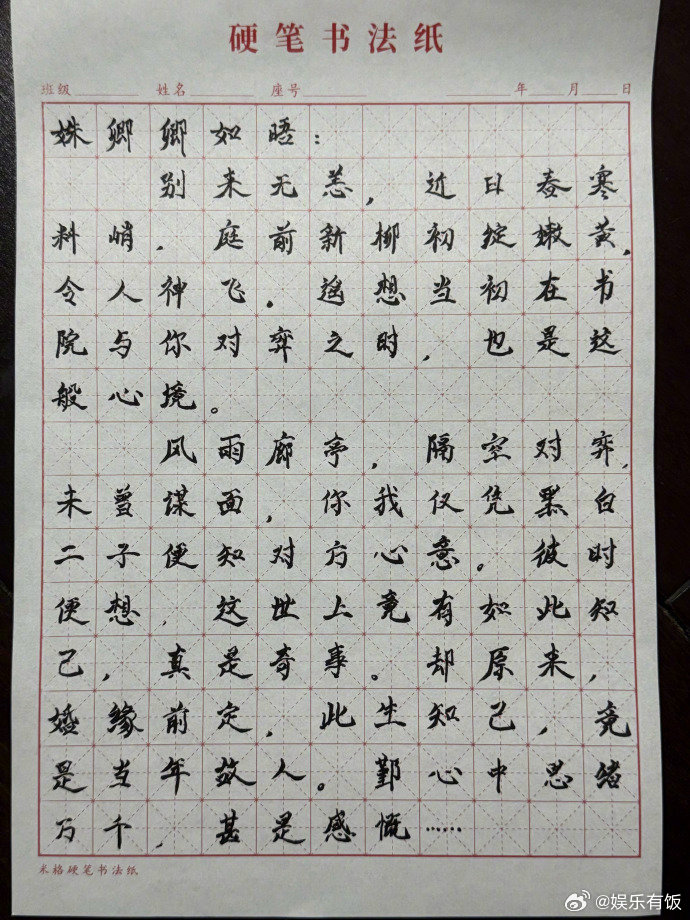 硬笔书法纸
班级 姓名 座号 年 月 日
姝卿卿如晤：
别来无恙，近日春寒
料峭，庭前新柳初绽嫩黄，
令人神飞。遥想当初在书
院与你对弈之时，也是这
般心境。
风雨廊亭，隔空对弈，
未曾谋面，你我仅凭黑白
二子便知对方心意。彼时
便想，这世上竟有如此知
己，真是奇事。却原来，
婚缘前定，此生知己，竟
是当年故人。鄞心中思绪
万千，甚是感慨……
米格硬笔书法纸
@娱乐有饭